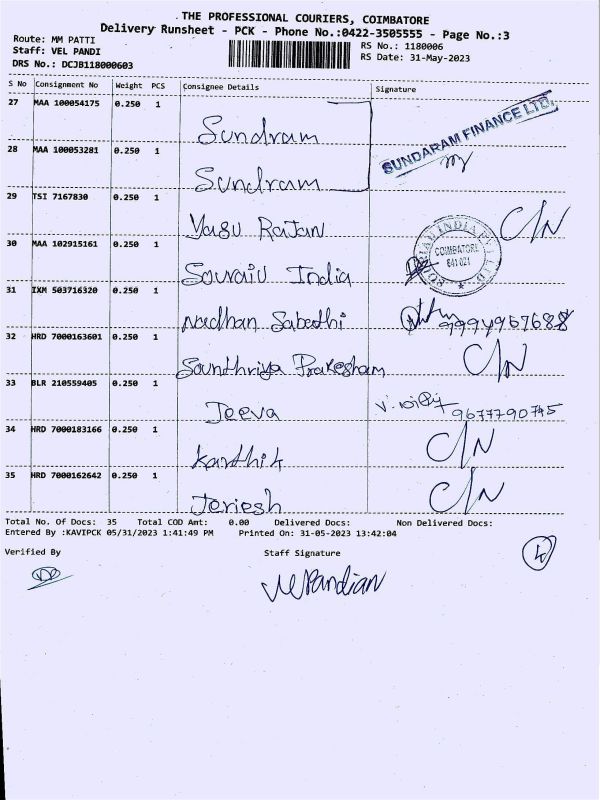 THE PROFESSIONAL COURIERS, COIMBATORE
Delivery Runsheet - PCK - Phone No.:0422-3505555 - Page No.:3
Route: MM PATTI
Staff: VEL PANDI
DRS No.: DCJB118000603
RS No.: 1180006
RS Date: 31-May-2023
S No Consignment No Weight PCS Consignee Details Signature
27 MAA 100054175 0.250 1 Sundram
SUNDARAM FINANCE LTD.
28 MAA 100053281 0.250 1 Sundram
29 TSI 7167830 0.250 1 Vasu Rajan C/N
30 MAA 102915161 0.250 1 India
COIMBATORE
641 021
31 IXM 503716320 0.250 1 9994967688
32 HRD 7000163601 0.250 1 Sounthriya Prakesham C/N
33 BLR 210559405 0.250 1 Jeeva 9677790745
34 HRD 7000183166 0.250 1 Karthik C/N
35 HRD 7000162642 0.250 1 Jeriesh C/N
Total No. Of Docs: 35 Total COD Amt: 0.00 Delivered Docs: Non Delivered Docs:
Entered By :KAVIPCK 05/31/2023 1:41:49 PM Printed On: 31-05-2023 13:42:04
Verified By Staff Signature
VelPandian